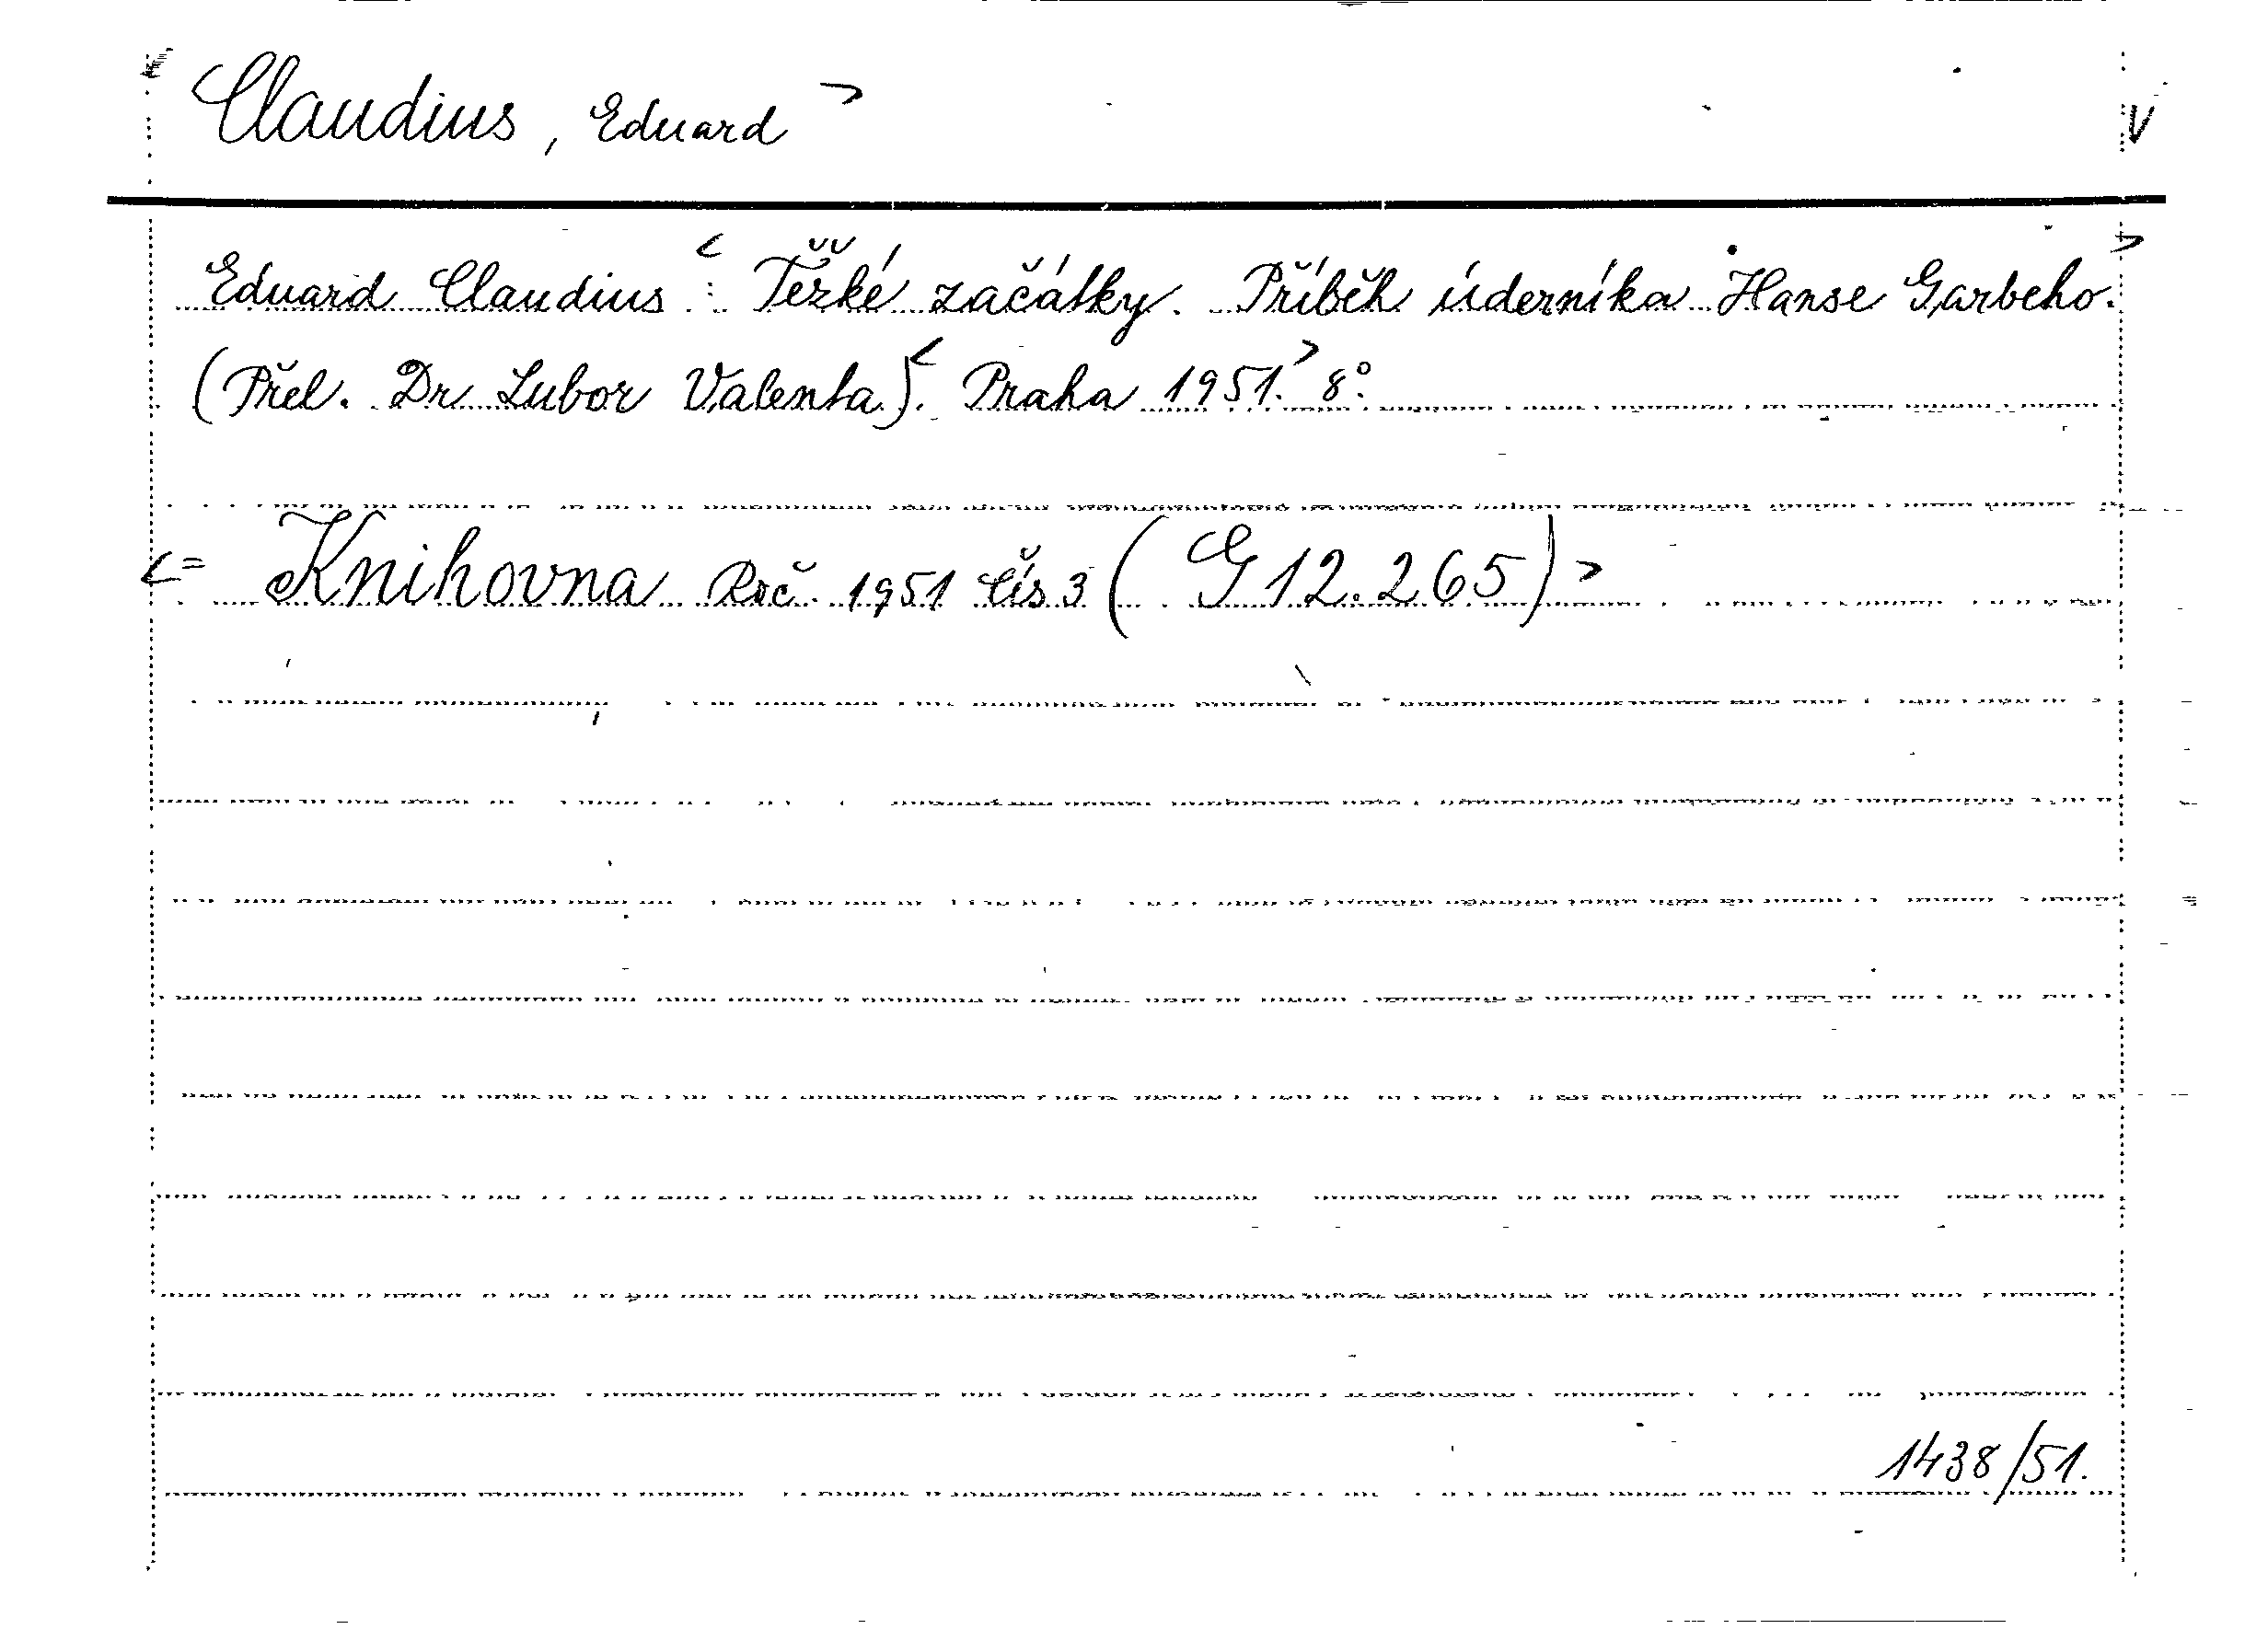 < Claudius, Eduard > V
Eduard Claudius : < Těžké začátky. Příběh úderníka Hanse Garbeho. >
(Přel. Dr Lubor Valenta). < Praha 1951. > 8°.
<= Knihovna Roč. 1951 čís 3 (G 12.265) >
1438/51.